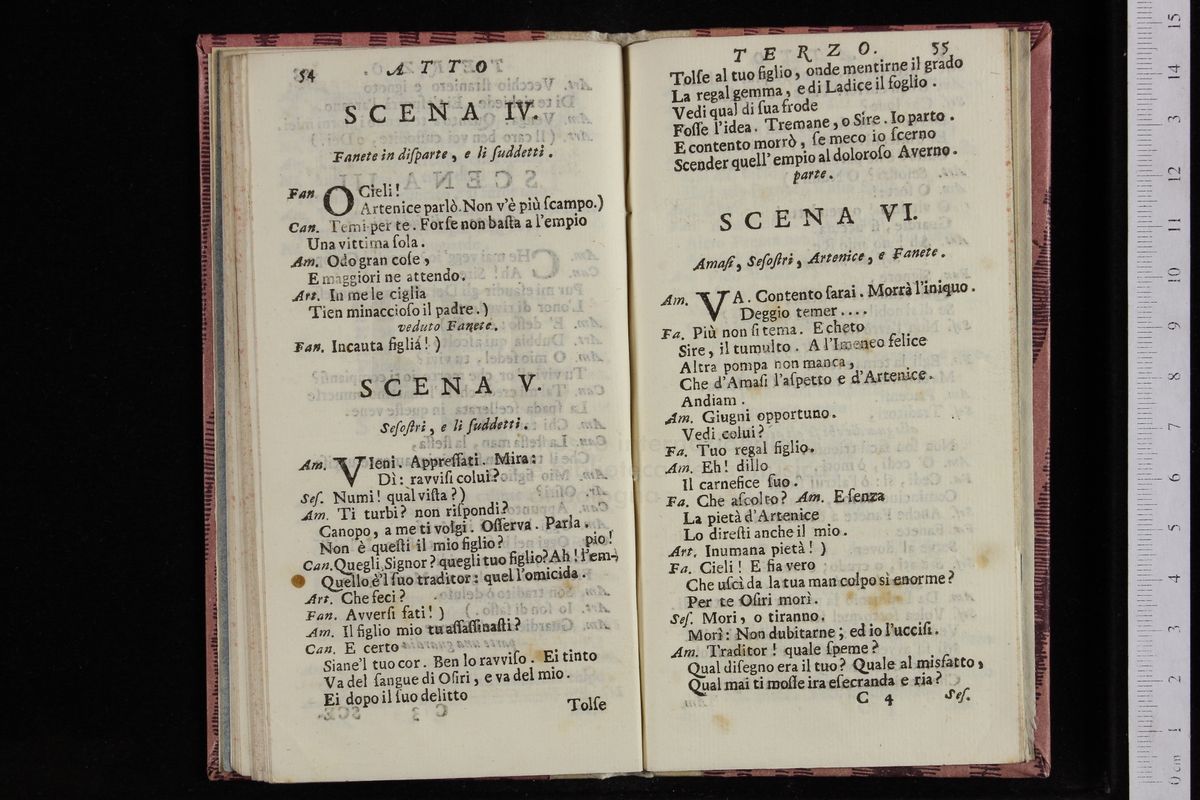 54 ATTO
SCENA IV.
Fanete in disparte, e li suddetti.
Fan O Cieli!
Artenice parlò. Non v'è più scampo.)
Can. Temi per te. Forse non basta a l'empio
Una vittima sola.
Am. Odo gran cose,
E maggiori ne attendo.
Art. In me le ciglia
Tien minaccioso il padre.)
veduto Fanete.
Fan. Incauta figlia!)
SCENA V.
Sesostri, e li suddetti.
Am. VIeni. Appressati. Mira:
Dì: ravvisi colui?
Ses. Numi! qual vista?)
Am. Ti turbi? non rispondi?
Canopo, a me ti volgi. Osserva. Parla.
Non è questi il mio figlio? pio!
Can. Quegli, Signor? quegli tuo figlio? Ah! l'em-
Quello è'l suo traditor: quel l'omicida.
Art. Che feci?
Fan. Avversi fati!)
Am. Il figlio mio tu assassinasti?
Can. E certo
Siane'l tuo cor. Ben lo ravviso. Ei tinto
Va del sangue di Osiri, e va del mio.
Ei dopo il suo delitto
Tolse
TERZO. 55
Tolse al tuo figlio, onde mentirne il grado
La regal gemma, e di Ladice il foglio.
Vedi qual di sua frode
Fosse l'idea. Tremane, o Sire. Io parto.
E contento morrò, se meco io scerno
Scender quell' empio al doloroso Averno.
parte.
SCENA VI.
Amasi, Sesostri, Artenice, e Fanete.
Am. VA. Contento sarai. Morrà l'iniquo.
Deggio temer....
Fa. Più non si tema. E cheto
Sire, il tumulto. A l'Imeneo felice
Altra pompa non manca,
Che d'Amasi l'aspetto e d'Artenice.
Andiam.
Am. Giugni opportuno.
Vedi colui?
Fa. Tuo regal figlio.
Am. Eh! dillo
Il carnefice suo.
Fa. Che ascolto? Am. E senza
La pietà d'Artenice
Lo diresti anche il mio.
Art. Inumana pietà!)
Fa. Cieli! E fia vero
Che uscì da la tua man colpo sì enorme?
Per te Osiri morì.
Ses. Mori, o tiranno.
Morì: Non dubitarne; ed io l'uccisi.
Am. Traditor! quale speme?
Qual disegno era il tuo? Quale al misfatto,
Qual mai ti mosse ira esecranda e ria?
C 4 Ses.